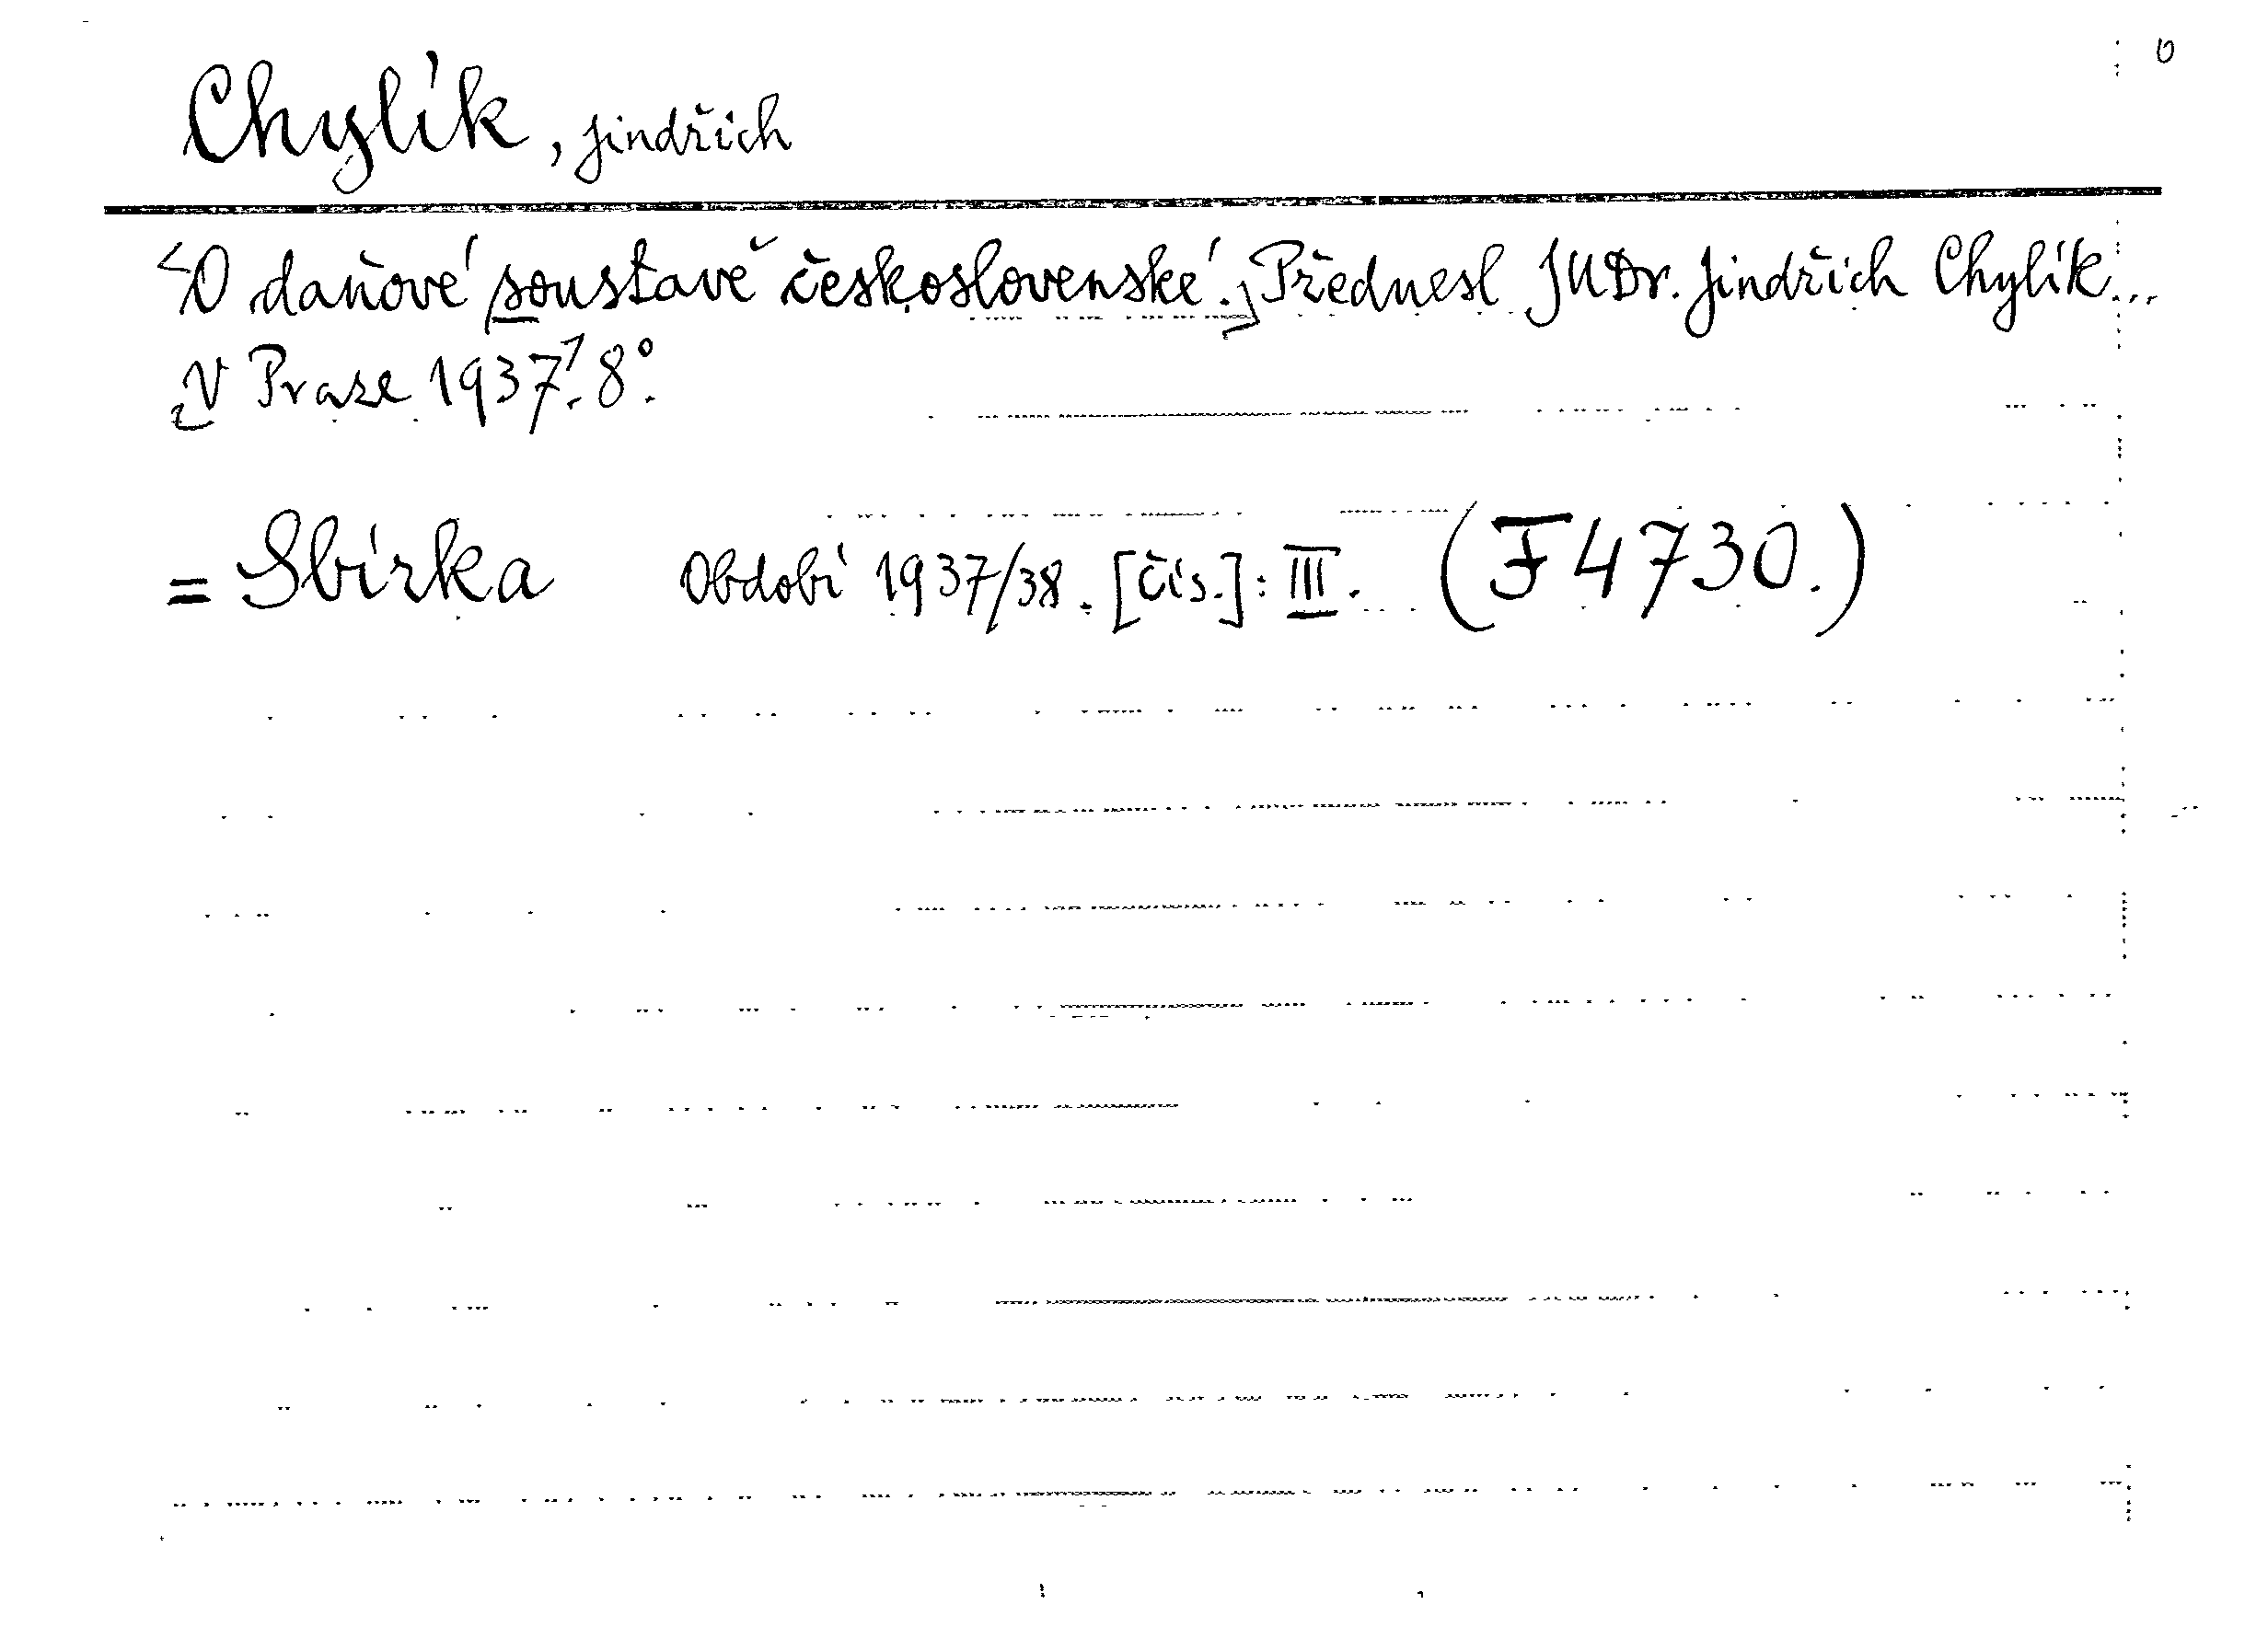 0
Chylík, Jindřich
O daňové soustavě československé. Přednesl JUDr. Jindřich Chylík...
V Praze 1937. 8°.
= Sbírka Období 1937/38. [Čís.]: III. (F 4730.)